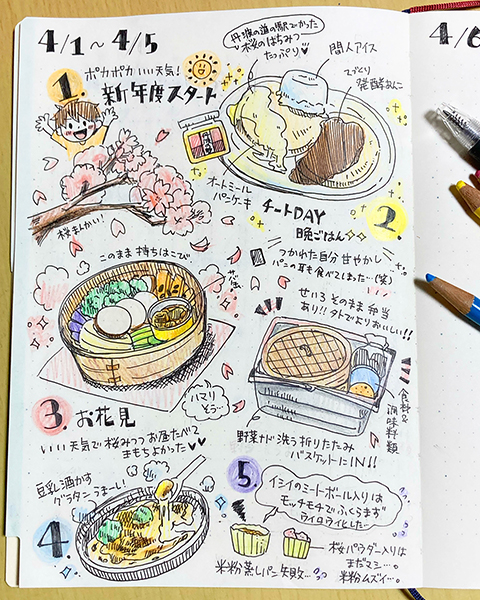 4/1～4/5
4/6
1.
ポカポカいい天気！
新年度スタート
丹波の道の駅でかった
桜のはちみつ
たっぷり♥
間人アイス
てづくり
発酵あんこ
オートミール
パンケーキ
桜まんかい！
チートDAY
2.
晩ごはん
つかれた自分甘やかし
パンの耳も食べてしまった…(笑)
このまま持ちはこび
せいろそのまま弁当
あり!!タトでよりおいしい!!
ハマり
そう…
食料&
調味料類
3.
お花見
いい天気で桜みつつお昼たべて
きもちよかった♥♥
野菜ナド洗う折りたたみ
バスケットにIN!!
豆乳酒かす
グラタンうまーし！
4
5.
イシイのミートボール入りは
モッチモチでふくらまず
ウイロウイヒした…
桜パウダー入りは
まだマシ…。
米粉蒸しパン失敗…
米粉ムズイ…。